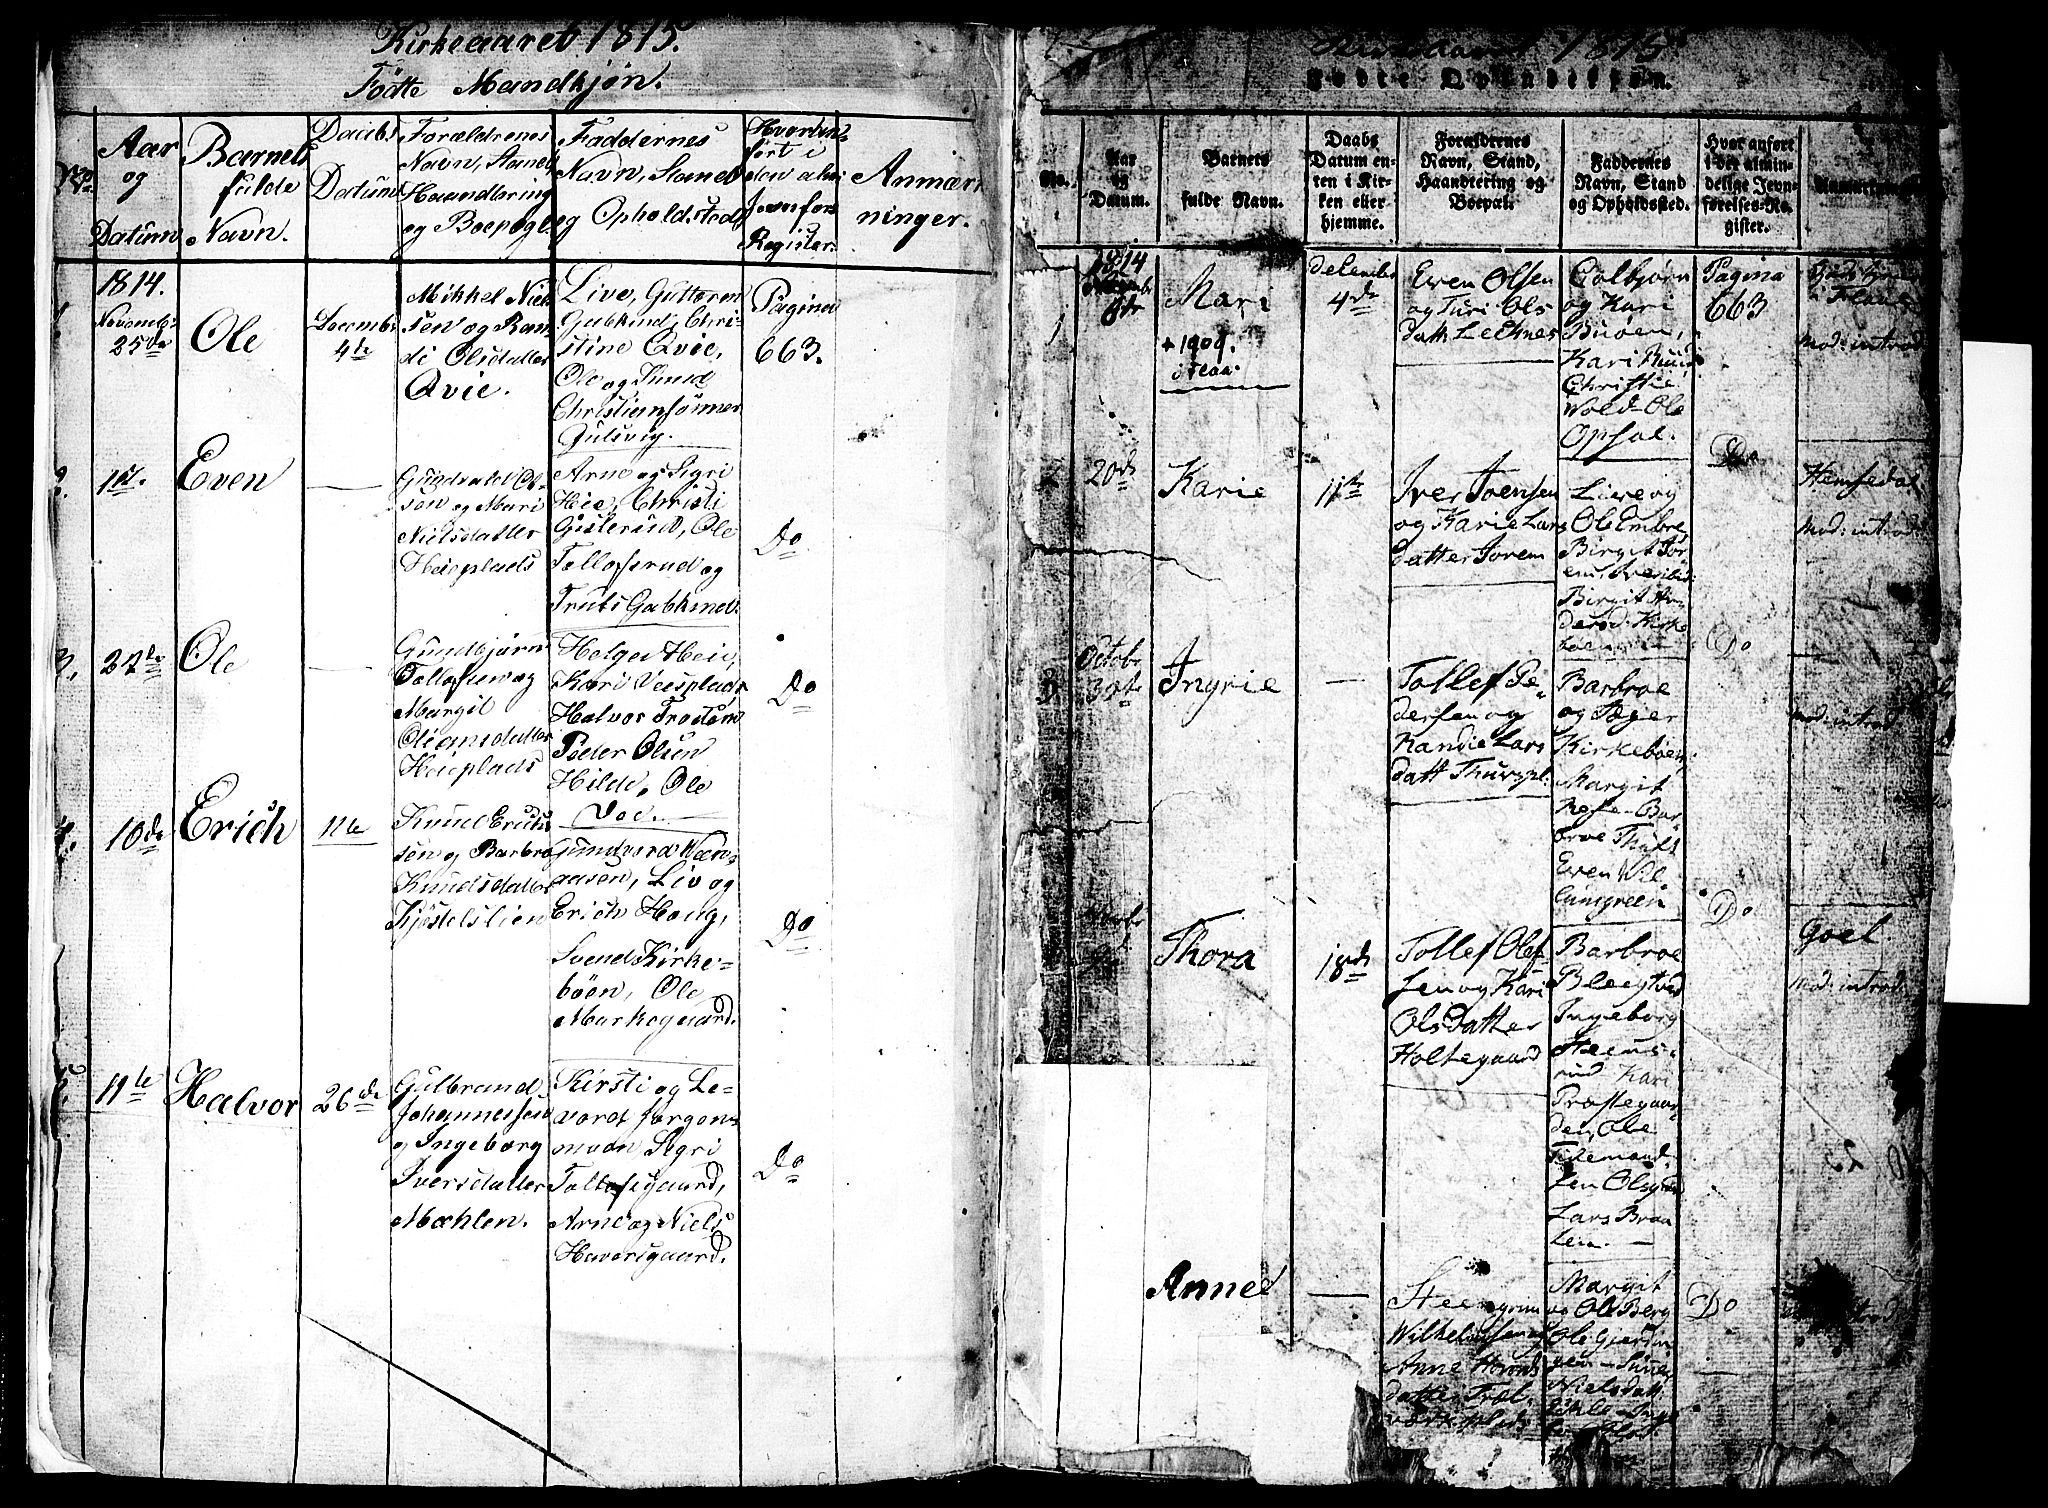 Kirkeaaret 1815.
Födte Mandkjøn.
No.
Aar
og
Datum
Barnets
fulde
Navn.
Daabs
Datum
Forældrenes
Navn, Stand
Haandtering
og Boepæle
Faddernes
Navn, Stand
og Opholdsted
Hvor an-
fört i
den alm:
Jevnför.
Register.
Anmærk-
ninger.
1814.
Novembr
25de
Ole
Decembr
4de
Mikkel Niel
sen og Ran
di Olsdatter
Qvie.
Live, Guttorm
Gabkind, Chri-
stine Qvie,
Ole og Knud
Christiansönner
Gulsvig.
Pagina
663.
2.
1st.
Even
Gundvald Ol-
sen og Mari
Nielsdatter
Heieplads
Arne og Sigri
Heie, Christi
Gislerud, Ole
Tollefsrud og
Truls Gabkind.
Do
3.
27de
Ole
Gundbjörn
Tollefsen og
Margit
Olsdatter
Heieplads
Helge Heie,
Kari Veesplads
Halvor Trostem
Peder Olsen
Hilde, Ole
Vod.
Do
4.
10de
Erich
11te
Knud Erich
sen og Barbro
Knudsdatter
Kjöstelslien
GundvordVærs-
aasen, Liv og
Erich Houg,
Svend Kirke-
böen, Ole
Markegaard.
Do
5.
11te
Halvor
26de
Gulbrand
Johannessen
og Ingeborg
Iversdatter
Mæhlen.
Kirsti og Le-
vord Jørgen-
moen Sigri
Tollefsgaard,
Arne og Niels
Haversgaard.
Do
Kirkeaaret 1815
Fødte Qvindekjøn.
No.
Aar
og
Datum.
Barnets
fulde Navn.
Daabs
Datum en-
ten i Kir-
ken eller
hjemme.
Forældrenes
Navn, Stand,
Haandtering og
Boepæl.
Faddernes
Navn, Stand
og Opholdsted.
Hvor anført
i det almin-
delige Jevn-
førelses-Re-
gister.
Anmærkninger
1
1814
Mari
+ 1909.
i Flaa.
decembr
4de
Even Olsen
og Turi Ols
datt Leknes
Colbjørn
og Kari
Buöen,
Kari Ruud
Christie
Vold - Ole
Opsal.
Pagina
663
i Flaae
mod: introd
2
20de
Karie
11te
Iver Joensen
og Karie Lars
datter Jorem
Live og
Ole Embre
Birgit Jor
Birgit
Kirke
böen
Do
Hemsedal
mod: introd:
3
Octobr
30te
Ingrie
Tollef Pe-
dersen og
Randie Lars
datt Thurspl:
Barbroe
og Asger
Kirkeböen
Margit
Refs - Bar
broe Thuft
Even Wil
lumsreen
Do
mod: introd
Thora
18de
Tollef Olef-
sen og Kari
Olsdatter
Holtegaard
Barbroe
Bleigtved
Ingeborg
Steens-
rud Kari
Præstegaar
den, Ole
Tidemand-
sen Olsgrd
Lars Braa
ten.
Do
Goel.
mod: introd
Anne
Steengrim
Wilhelmsen og
Anne
datter
Margit
og Ole Berg
Ole Gjerdin
gen - Live
Nielsdatt
Do